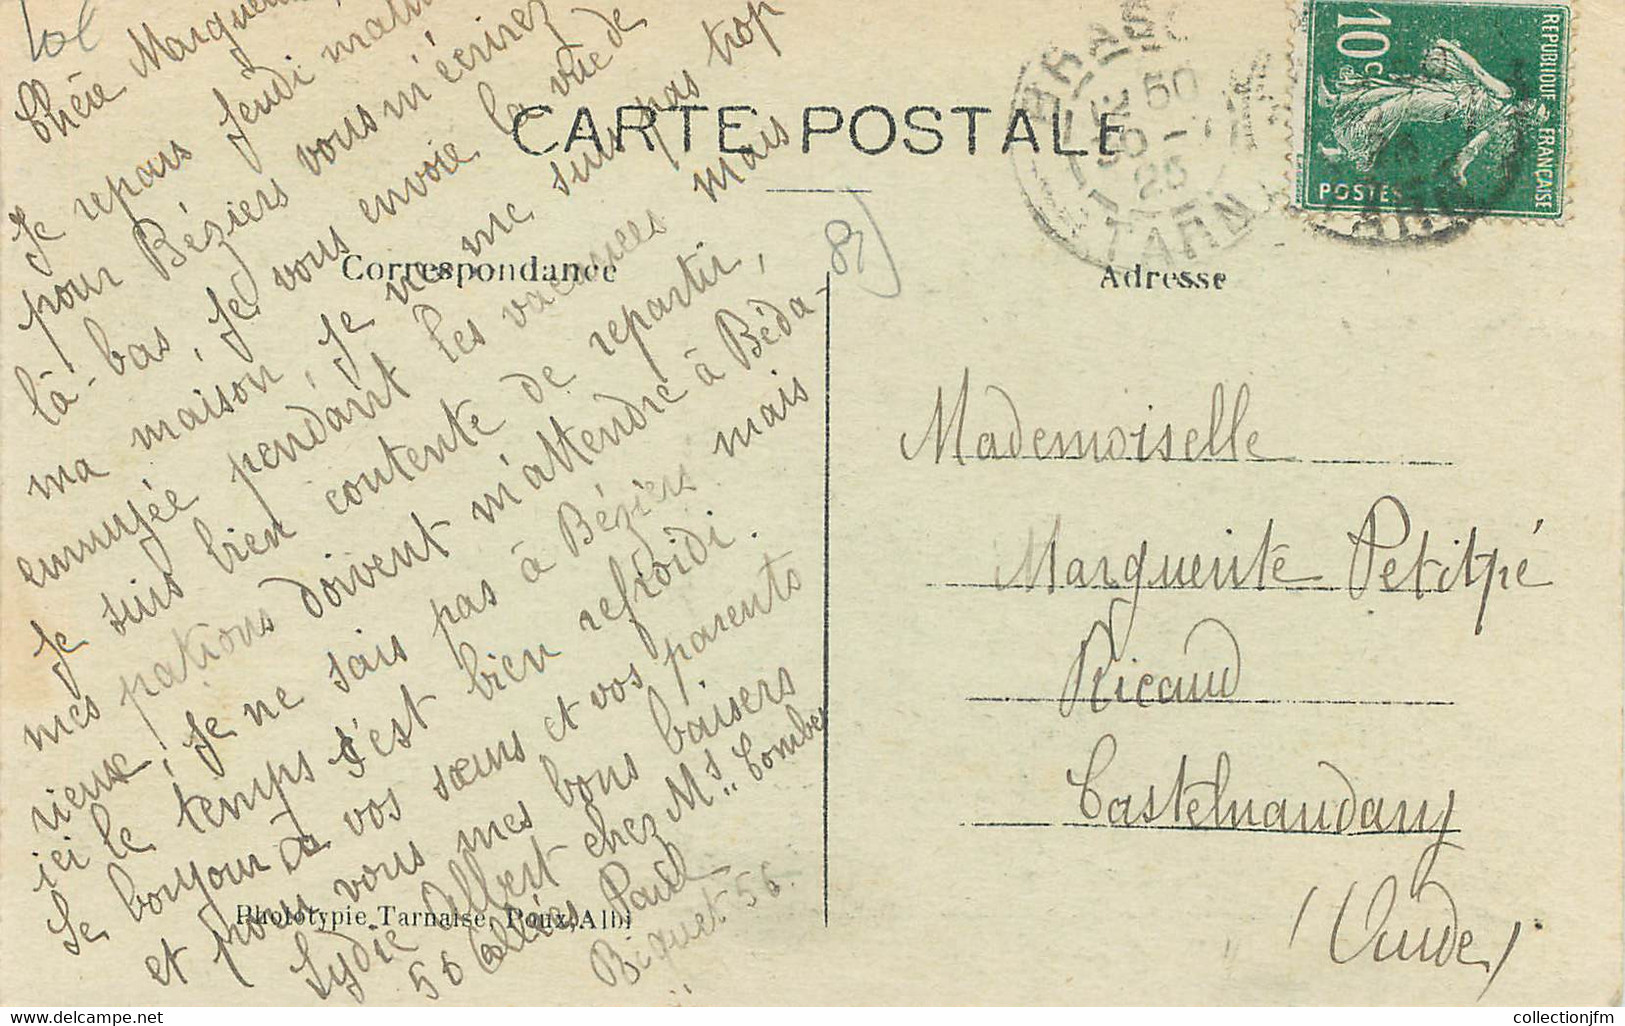 10c
CARTE POSTALE
Correspondance
Chère Marguerite
Je repars Jeudi matin
pour Béziers vous m'écrirez
là-bas, Je vous envoie la vue de
ma maison, Je ne me suis pas trop
ennuyée pendant les vacances mais
Je suis bien contente de repartir,
mes patrons doivent m'attendre à Béda-
rieux, Je ne sais pas à Béziers mais
ici le temps s'est bien refroidi.
Le bonjour à vos sœurs et vos parents
et pour vous mes bons baisers
Lydie Albert chez Ms Combes
56 Allées Paul
Riquet 56
Phototypie Tarnaise, Poux, Albi
Adresse
Mademoiselle
Marguerite Petitpé
Ricaud
Castelnaudary
(Aude)
81
50
30 - 7
25
TARN
REPUBLIQUE FRANÇAISE
10 c
POSTES
www.delcampe.net
collectionjfm